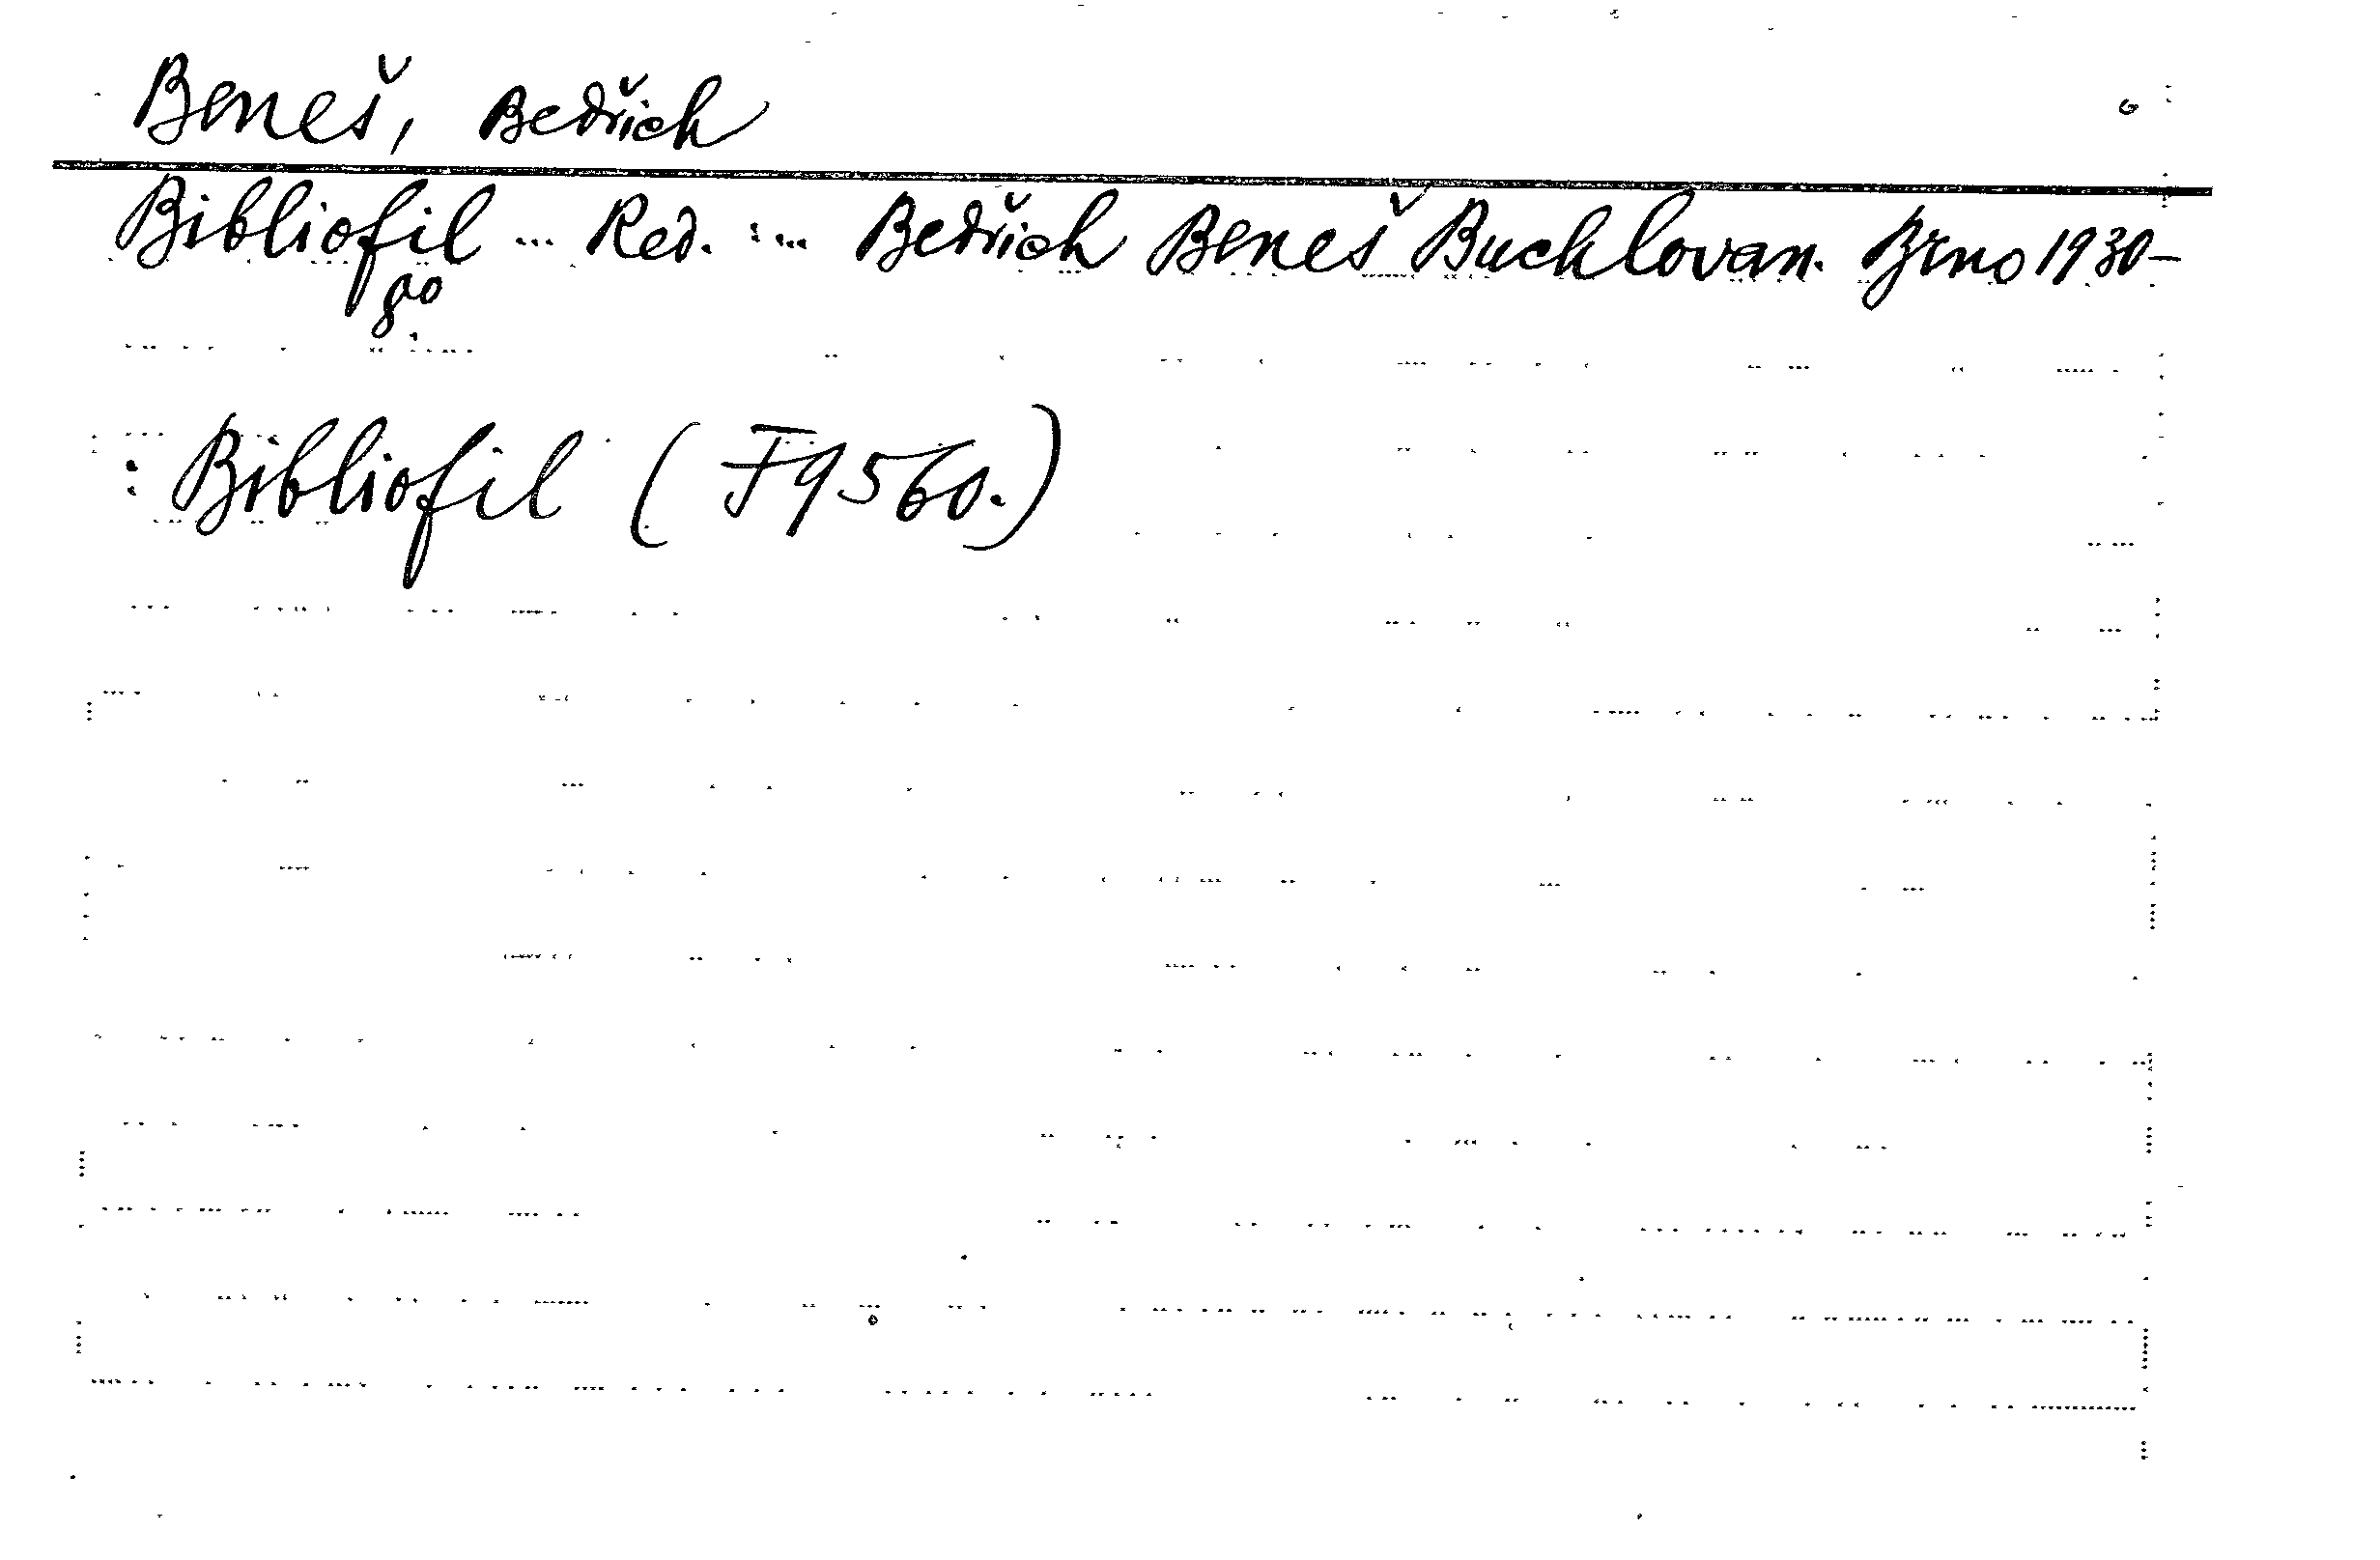 Beneš, Bedřich
Bibliofil ... Red. : ... Bedřich Beneš Buchlovan. Brno 1930–
8°
: Bibliofil (F9560.)